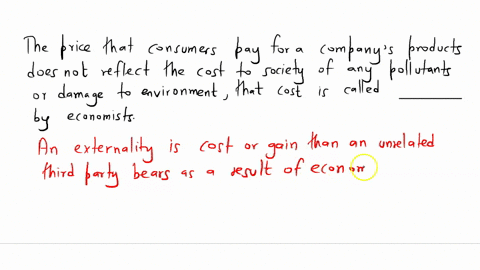 The price that consumers pay for a company's products
does not reflect the cost to society of any pollutants
or damage to environment, that cost is called ________
by economists.
An externality is cost or gain than an unrelated
third party bears as a result of econom